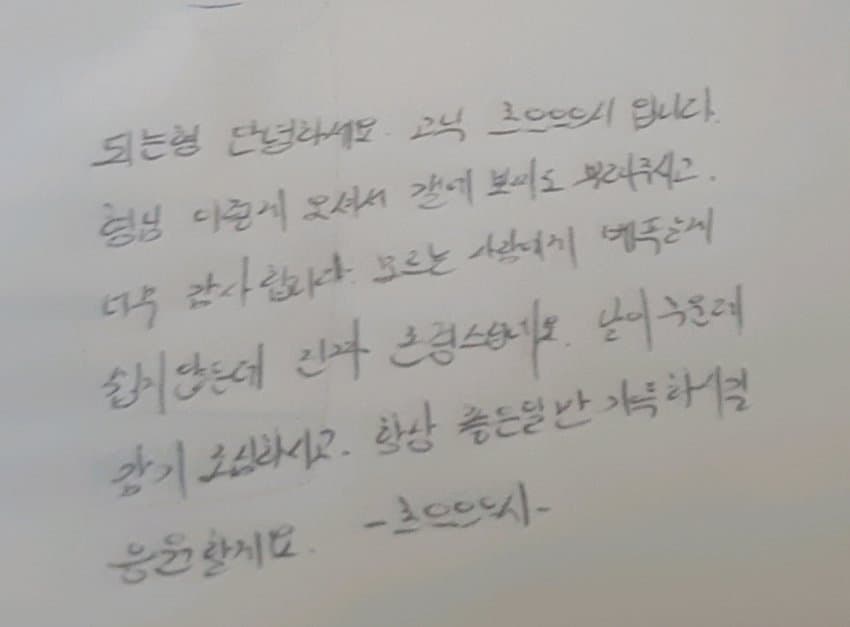 되는형 안녕하세요. 고닉 흐으으으시 입니다.
형님 이쁜게 오셔서 갤에 보피도 뿌려주시고.
너무 감사합니다. 모르는 사람에게 베푸는게
쉽지 않은데 진짜 존경스럽네요. 날이 추운데
감기 조심하시고. 항상 좋은일만 가득하시길
응원할게요. -흐으으으시-